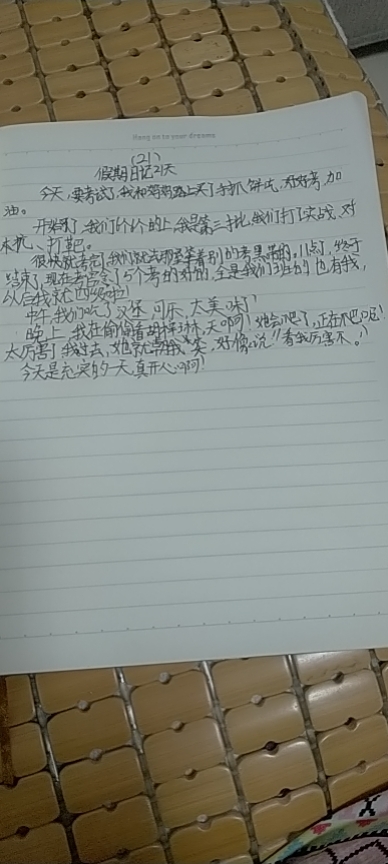 Hang on to your dreams
(21)
假期日记21天
今天,要考试了,我和妈妈路上买了手抓饼吃,好好考,加
油。
开始了,我们个个的上,我是第三批,我们打了实战,对
木杭、打靶。
很快就考完了,我们就去那坐等着别的考黑带的。11点了,终于
结束了,现在考官念了5个考的好的,全是我们班的,也有我,
以后我就四级啦!
中午我们吃了汉堡,可乐,太美味了!
晚上,我在偷偷看胡梓琳,天啊!她会爬了,正在爬呢!
太厉害了,我过去,她就对我笑,好像说"看我厉害不!"
今天是充实的一天,真开心啊!